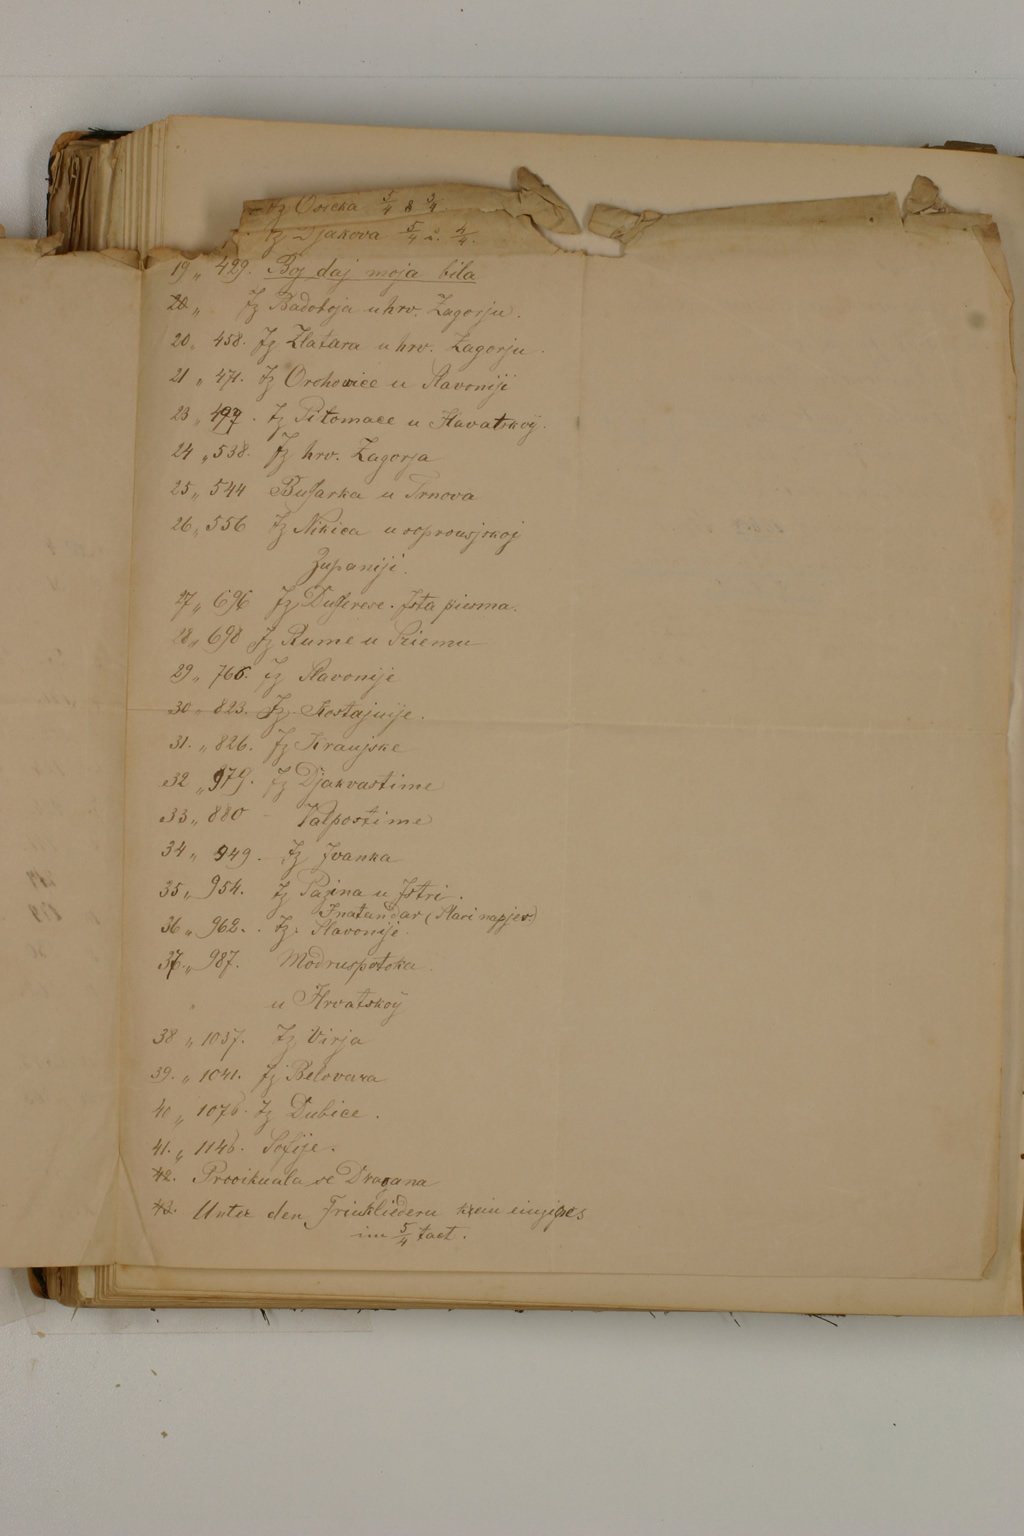 Iz Osieka 5/4 & 3/4
Iz Djakova 5/4 u. 4/4.
19 „ 429. Bog daj moja bila
20 „ Iz Radoboja u hrv. Zagorju.
20 „ 458. Iz Zlatara u hrv. Zagorju.
21 „ 471. Iz Orohovice u Slavoniji
23 „ 497. Iz Pitomace u Hrvatskoj.
24 „ 538. Iz hrv. Zagorja
25 „ 544 Bugarka u Trnova
26 „ 556 Iz Nikica u soprounjskoj
Županiji.
27 „ 696 Iz Dugerese. Ista piesma.
28 „ 698 Iz Rume u Sriemu
29 „ 766. Iz Slavonije
30 „ 823. Iz Kostajnije.
31. „ 826. Iz Kranjske
32 „ 979. Iz Djakvastime
33 „ 880 – Valpostime
34 „ 949. Iz Ivanka
35 „ 954. Iz Pazina u Istri.
Inatandar (Stari napjev)
36 „ 962. Iz Slavonije.
37 „ 987. Modruspotoka
u Hrvatskoj
38 „ 1037. Iz Virja
39. „ 1041. Iz Belovara
40 „ 1076. Iz Dubice.
41. „ 1146. Sofije.
42. se Dragana
43. Unter den Trinkliedern kein einziges
im 5/4 tact.